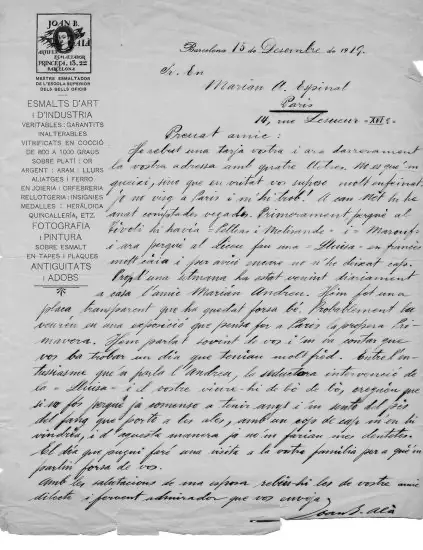 JOAN B.
ALÀ
ARTIFEX
ESMALTADOR
PRINCESA, 13, 22
BARCELONA
MESTRE ESMALTADOR
DE L'ESCOLA SUPERIOR
DELS BELLS OFICIS
ESMALTS D'ART
I D'INDUSTRIA
VERITABLES: GARANTITS
INALTERABLES
VITRIFICATS EN COCCIÓ
DE 800 A 1000 GRAUS
SOBRE PLATÍ | OR
ARGENT | ARAM | LLURS
ALIATGES I FERRO
EN JOIERIA | ORFEBRERIA
RELLOTGERIA: INSIGNIES
MEDALLES | HERALDICA
QUINCALLERÍA, ETZ.
FOTOGRAFIA
I PINTURA
SOBRE ESMALT
EN TAPES I PLAQUES
ANTIGUITATS
I ADOBS
Barcelona 15 de Desembre de 1919.
Sr. En
Marian A. Espinal
Paris
14, rue Lesueur -XVIe
Presat amic:
He rebut una tarja vostra i ara darrerament
la vostra adressa amb quatre lletres. No es qu'm
queixi, sino que en veritat vos suposo molt enfeinat.
Jo no visc a Paris i m'hi trob! A can Not hi he
anat comptades vegades. Primerament perqué al
Tívoli hi havía "Pelleas i Melisande" i "Marouf"
i ara perqué al Liceu fan una "Lluisa" en francés
molt
i per això encara no n'he deixat cap.
una setmana ha estat venint diariament
a casa l'amic Marián Andreu. Hem fet una
placa transparent que ha quedat forsa bé. Probablement la
veureu en una exposició que pensa fer a Paris la propera pri-
mavera. Hem parlat sovint de vos i m va contar que
vos va trobar un dia que teníeu molt fred. Entre l'en-
tusiasme que a parla l'Andreu, la seductora intervenció de
la "Lluisa" i el vostre viure-hi de bó de bó, cregueu que
si no fos perqué ja comenso a tenir anys i m sento del pes
del fang que porto a les ales, amb un cop de cap m'en hi
vindría, i d'aquesta manera ja no m farían mes dentetes.
El día que pugui faré una visita a la vostra familia per a qué m
partin forsa de vos.
Amb les salutacions de ma esposa rebeu-hi les de vostre amic
dilecte i fervent admirador que vos enveja
Joan B. Alà